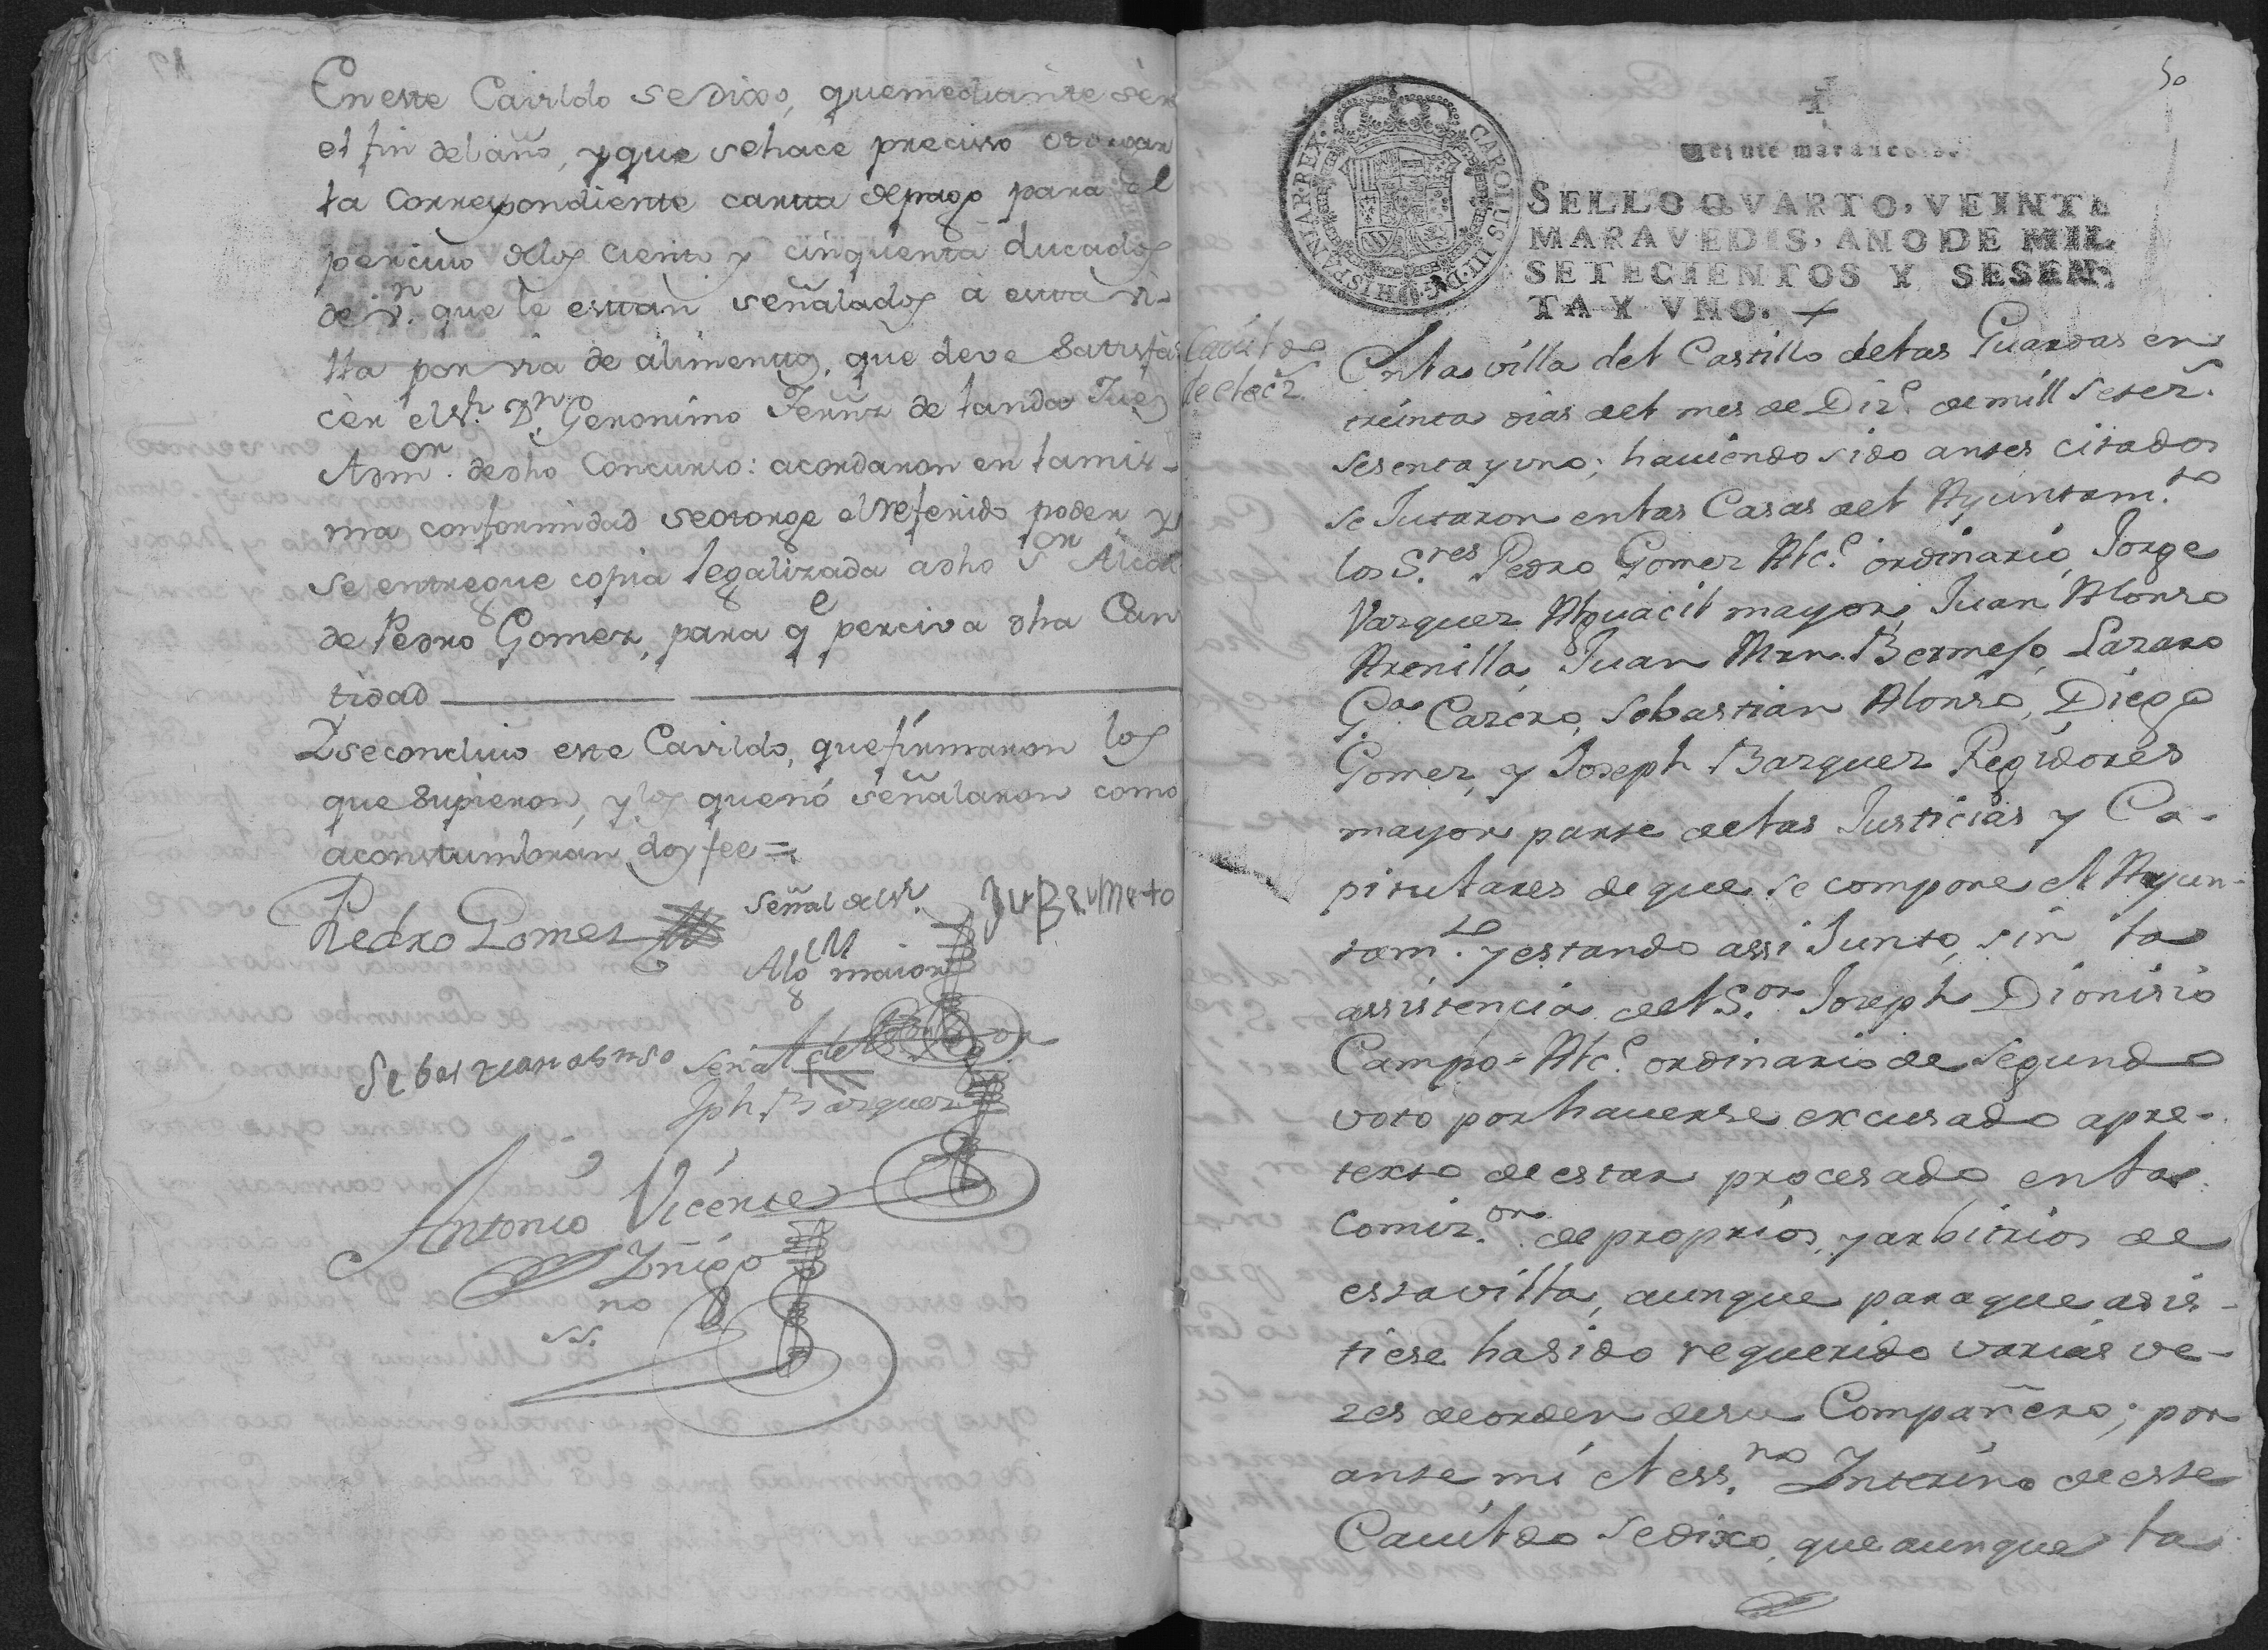 En este Cavildo se dixo, que mediante sèr
el fin del año, y que se hace precisso otorgar
la Correspondiente carta de pago para el
percivo de los ciento y cinquenta ducados
de v.n que le estan señalados à esta vi-
lla por via de alimentos, que deve satisfa-
cer el S.r D.n Geronimo Fernz de Landa Juez
Adm.or de dho Concurso: acordaron en la mis-
ma conformidad se otorge el referido poder y
se entregue copia legalizada a dho S.or Alcal
de Pedro Gomez, para q.e perciva dha Can
tidad
Y se concluio este Cavildo, que firmaron los
que supieron, y los que nó señalaron como
acostumbran doy fee =
Pedro Gomez
Señal del S.r
Alg.cil maior
Sebastian alonso
Señal de
Jph. Barquez
Antonio Vicente
Yñigo
ss.no
50
Veinte maravedis.
SELLO QVARTO, VEINTE
MARAVEDIS, AÑO DE MIL
SETECIENTOS Y SESEN-
TA Y VNO.
CAROLUS III D.G. HISPANIAR. REX.
Cavildo
de elecz.
En la villa del Castillo de las Guardas en
treinta dias del mes de Diz.e de mill setez.s
sesenta y uno; haviendo sido antes citados
se Jutaron en las Casas del Ayuntam.to
los S.res Pedro Gomez Alc.e ordinario, Jorge
Varquez Alguacil mayor, Juan Alonso
Arenilla, Juan Mrn. Bermejo, Lazaro
G.a Carero, Sebastian Alonso, Diego
Gomez, y Joseph Barquez Regidores
mayor parte de las Justicias y Ca-
pitulares de que se compone el Ayun-
tam.to y estando assi Junto, sin la
assistencia del S.or Joseph Dionisio
Campo = Alc.e ordinario de segundo
voto por haverse excusado a pre-
texto de estar procesado en la
Comiz.on de proprios, y arbitrios de
esta villa, aunque para que asis-
tiese ha sido requerido varias ve-
zes de orden de su Compañero; por
ante mi el ess.no Ynterino de este
Cavildo se dixo, que aunque la